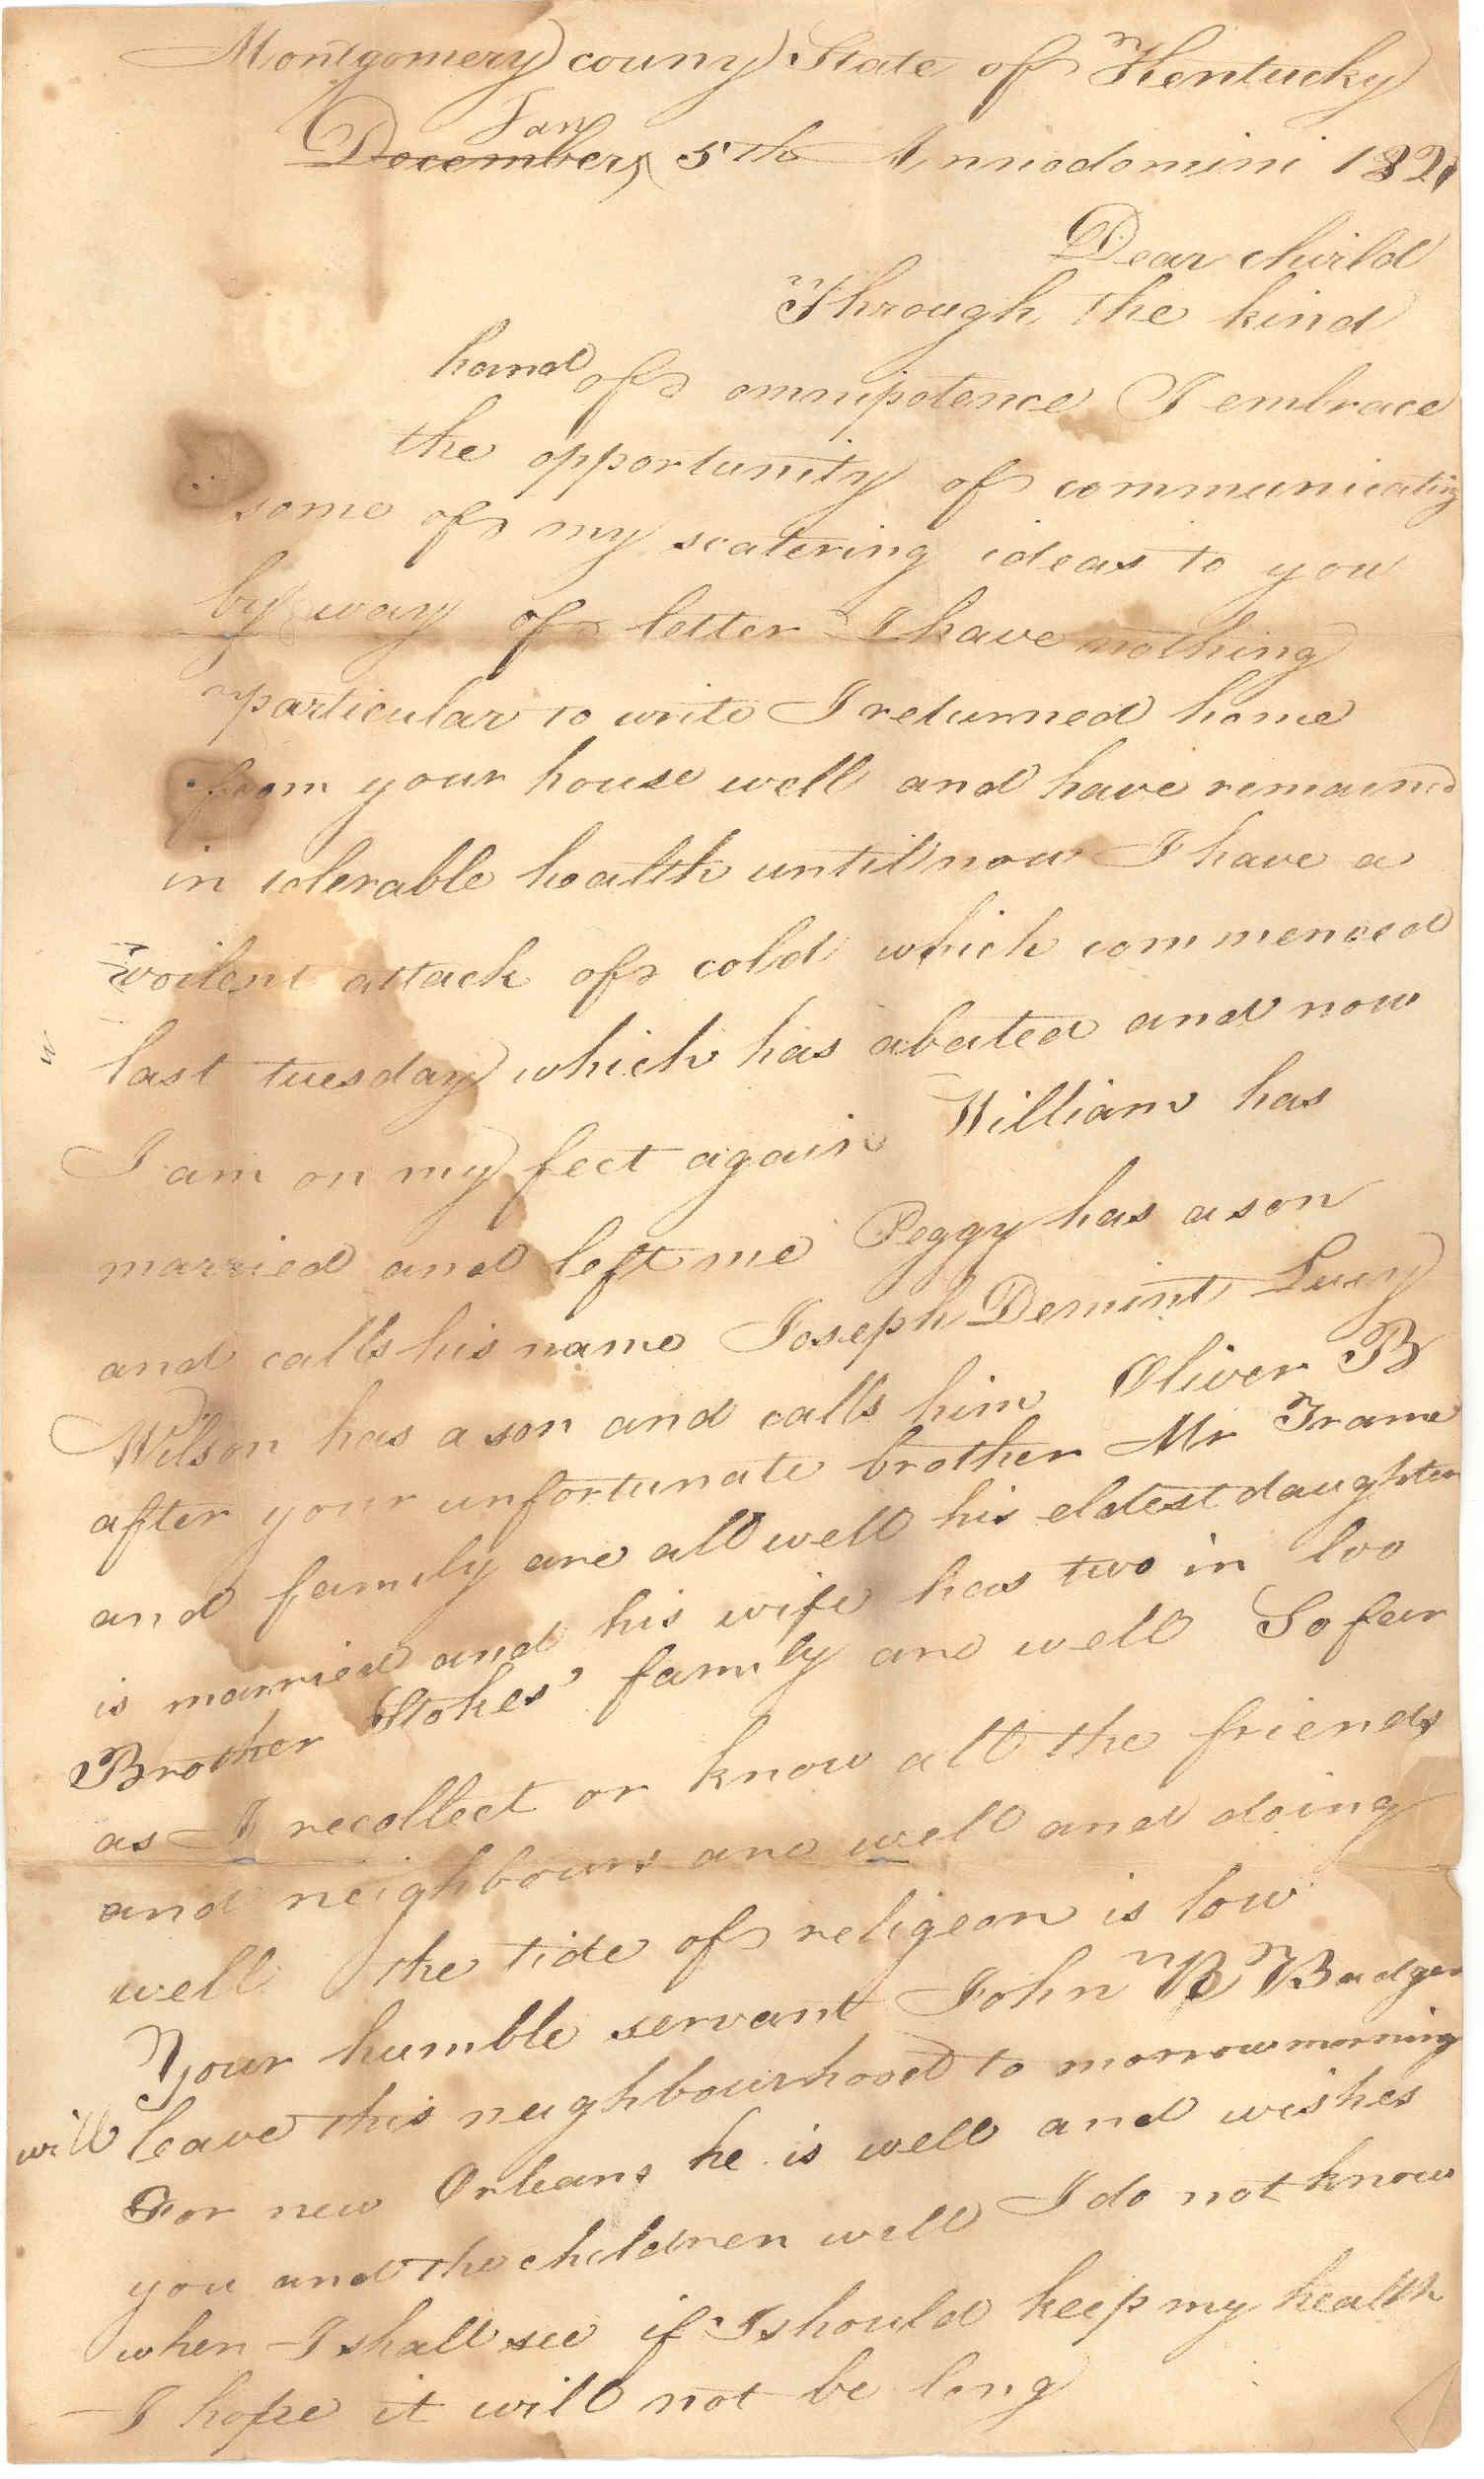 Montgomery couny State of Kentucky
Jan
December 5th Annodomini 1821
Dear child
Through the kind
hand of omnipotence I embrace
the opportunity of communicating
some of my scatering ideas to you
by way of letter I have nothing
particular to write I returned home
from your house well and have remained
in tolerable health until now I have a
voilent attack of cold which commenced
last tuesday which has abated and now
I am on my feet again William has
married and left me Peggy has a son
and calls his name Joseph Demint Lucy
Wilson has a son and calls him Oliver B
after your unfortunate brother Mr Frame
and family are all well his eldest daughter
is married and his wife has two in loo
Brother Stokes' family are well So far
as I recollect or know all the friends
and neighbours are well and doing
well the tide of religeon is low
Your humble servant John B Badger
will leave this neighbourhood to morrow morning
For new Orleans he is well and wishes
you and the children well I do not know
when I shall see if I should keep my health
I hope it will not be long